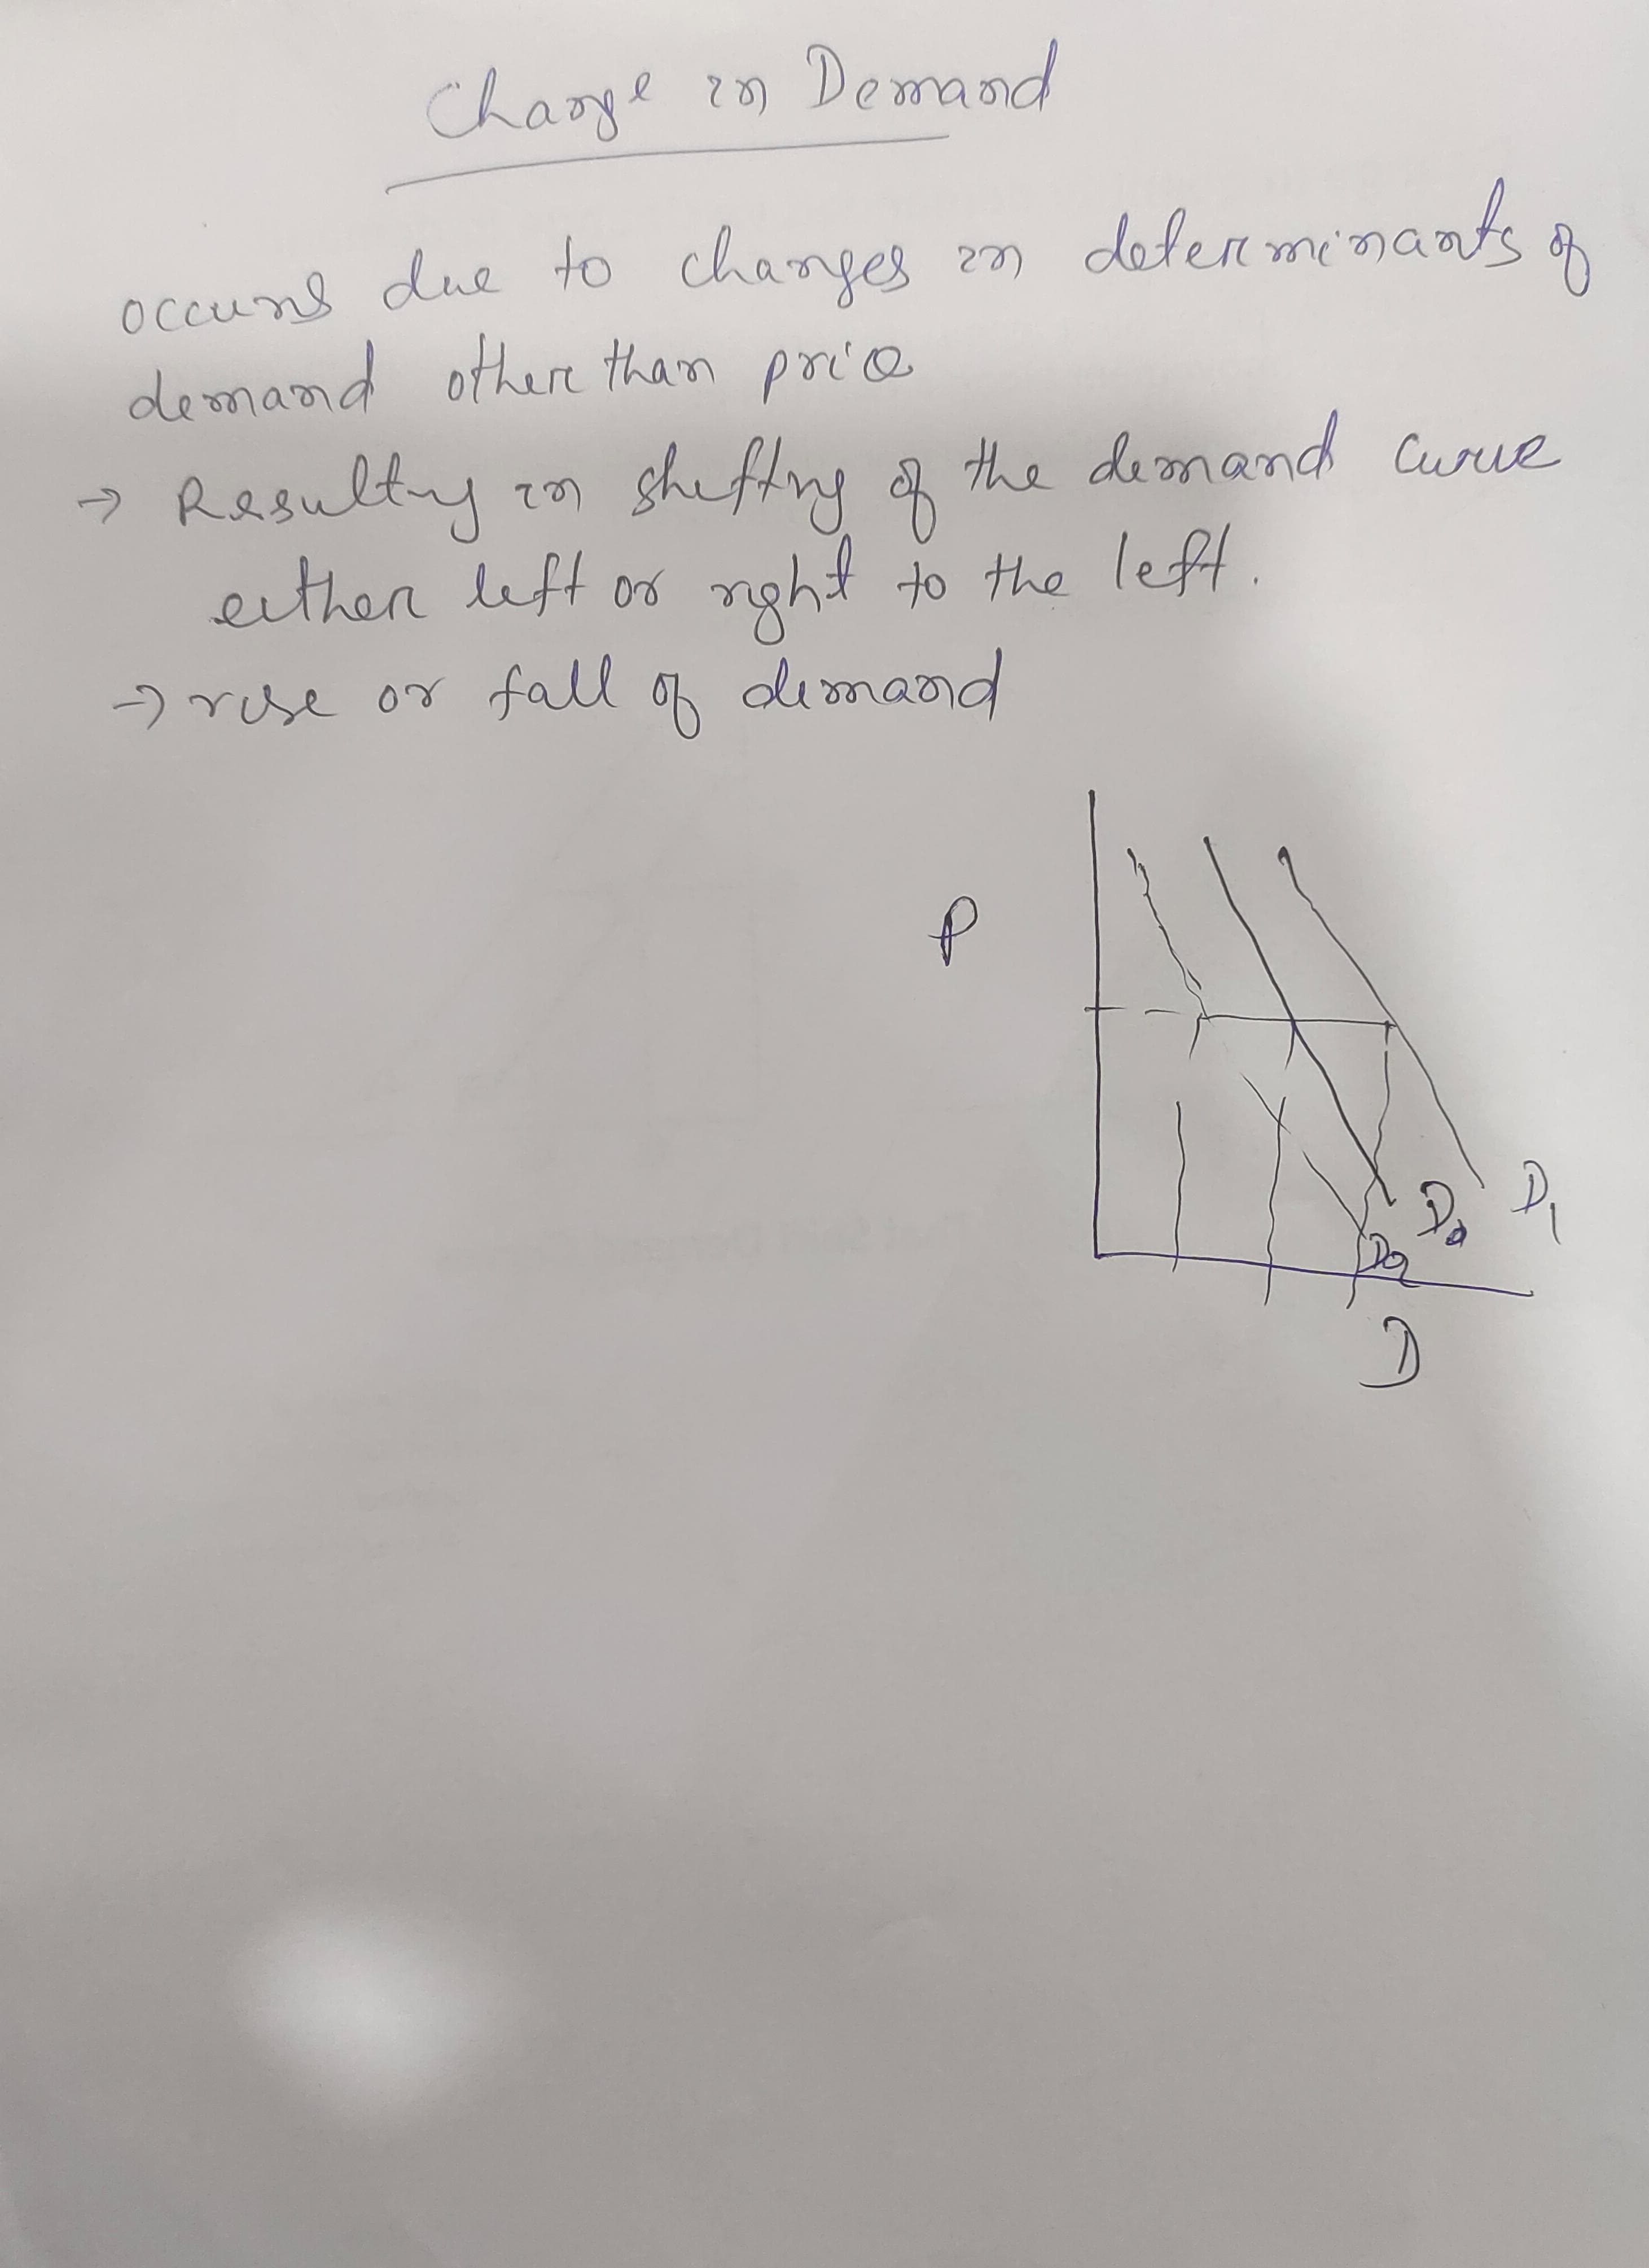 Change in Demand
occurs due to changes in determinants of
demand other than price
→ Resulting in shifting of the demand curve
either left or right to the left.
→ rise or fall of demand
P
D₀ D₁
D₂
D